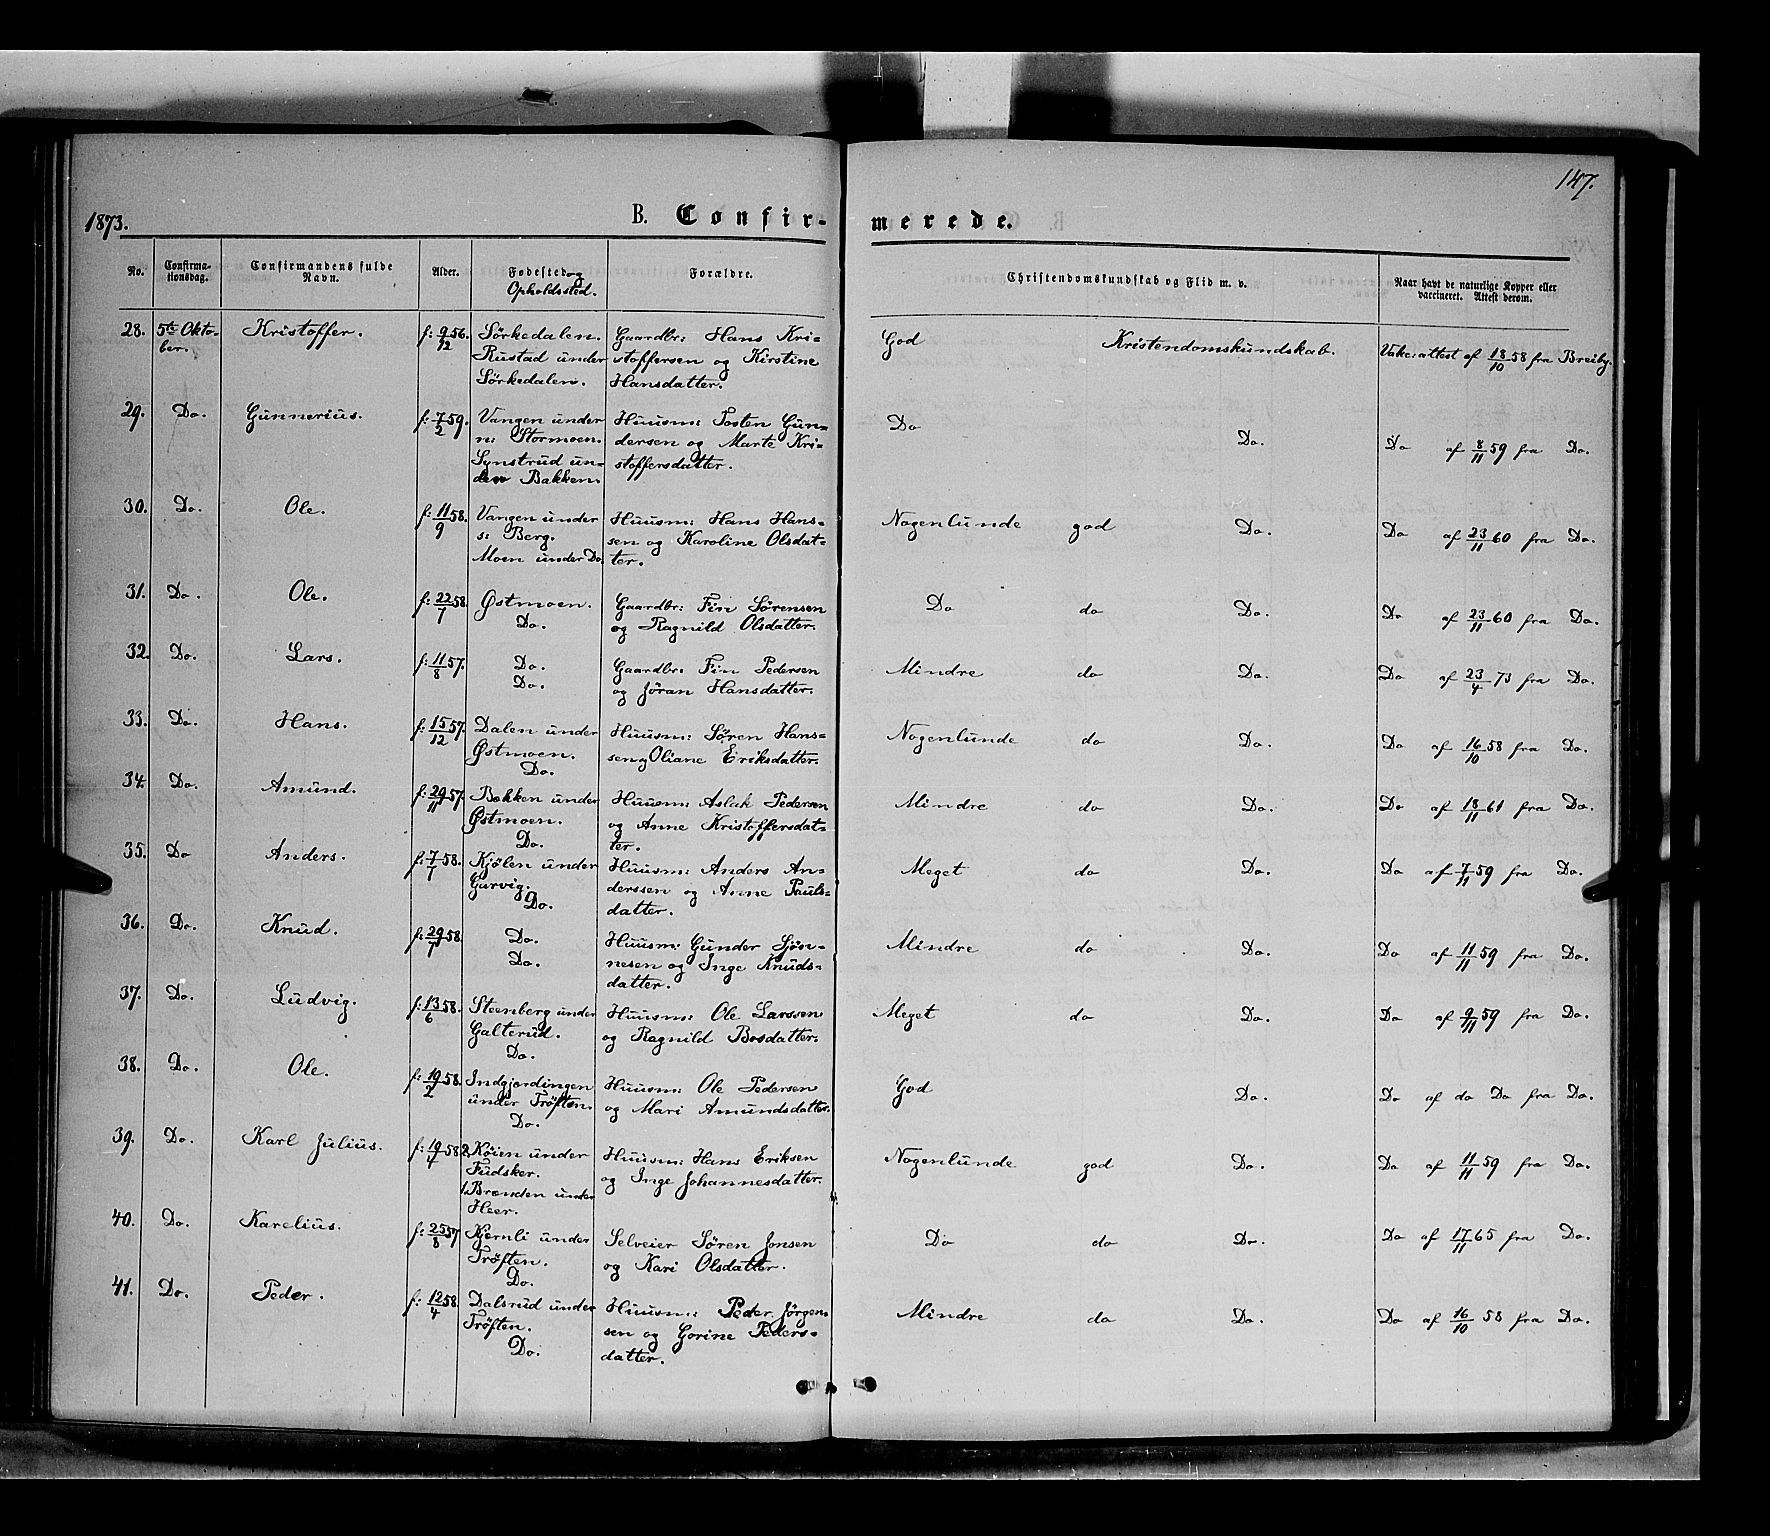 147.
1873.
B. Confir- merede.
No. Confirma-tionsdag. Confirmandens fulde Navn. Alder. Fødested og Opholdssted. Forældre. Christendomskundskab og Flid m. v. Naar havt de naturlige Kopper eller vaccineret. Attest derom.
28. 5te Okto- Kristoffer. f: 9/12 56. Sörkedalen. Gaardbr: Hans Kri- God Kristendomskundskab. af 18/10 58 fra Breiby.
ber. Rustad under stoffersen og Kirstine
Sörkedalen. Hansdatter.
29. Do. Gunnerius. f: 7/2 59. Vangen under Huusm: Tosten Gun- Do Do. Do af 8/11 59 fra Do.
n: Stormoen. dersen og Marte Kri-
Synstrud un- stoffersdatter.
der Bakken.
30. Do. Ole. f: 11/9 58. Vangen under Huusm: Hans Hans- Nogenlunde god Do. Do af 23/11 60 fra Do.
s: Berg. sen og Karoline Olsdat-
Moen under Do. ter.
31. Do. Ole. f: 22/7 58. Østmoen. Gaardbr: Fin Sörensen Do do Do. Do af 23/11 60 fra Do.
Do. og Ragnild Olsdatter.
32. Do. Lars. f: 11/8 57. Do. Gaardbr: Fin Pedersen Mindre do Do. Do af 23/4 73 fra Do.
Do. og Jöran Hansdatter.
33. Do. Hans. f: 15/12 57. Dalen under Huusm: Sören Hans- Nogenlunde do Do. Do af 16/10 58 fra Do.
Østmoen. sen og Oliane Eriksdatter.
Do.
34. Do. Amund. f: 29/11 57. Bakken under Huusm: Aslak Pedersen Mindre do Do. Do af 18/11 61 fra Do.
Østmoen. og Anne Kristoffersdat-
Do. ter.
35. Do Anders. f: 7/7 58. Kjölen under Huusm: Anders An- Meget do Do. Do af 7/11 59 fra Do.
Gurvig. derssen og Anne Pauls-
Do. datter.
36. Do. Knud. f: 29/7 58. Do. Huusm: Gunder Sjön- Mindre do Do. Do af 11/11 59 fra Do.
Do. nesen og Inge Knuds-
datter.
37. Do. Ludvig. f: 13/6 58. Steenberg under Huusm: Ole Larssen Meget do Do. Do af 9/11 59 fra Do.
Galterud. og Ragnild Bosdatter.
Do.
38. Do. Ole. f: 19/2 58. Indgjordingen Huusm: Ole Pedersen God Do. Do af do Do fra Do.
under Tröften. og Mari Amundsdatter.
Do.
39. Do. Karl Julius. f: 19/4 58. 2. Köien under Huusm: Hans Eriksen Nogenlunde god Do. Do af 11/11 59 fra Do.
Fudsker. og Inge Johannesdatter.
1. Brænden under
Heer.
40. Do. Karelius. f: 25/8 57 Kjernli under Selveier Sören Jonsen Do do Do. Do af 17/11 65 fra Do.
Tröften. og Kari Olsdatter.
Do.
41. Do. Peder. f: 12/4 58. Dalsrud under Huusm: Peder Jörgen- Mindre do Do. Do af 16/10 58 fra Do.
Tröften. sen og Gorine Peders-
Do. datter.